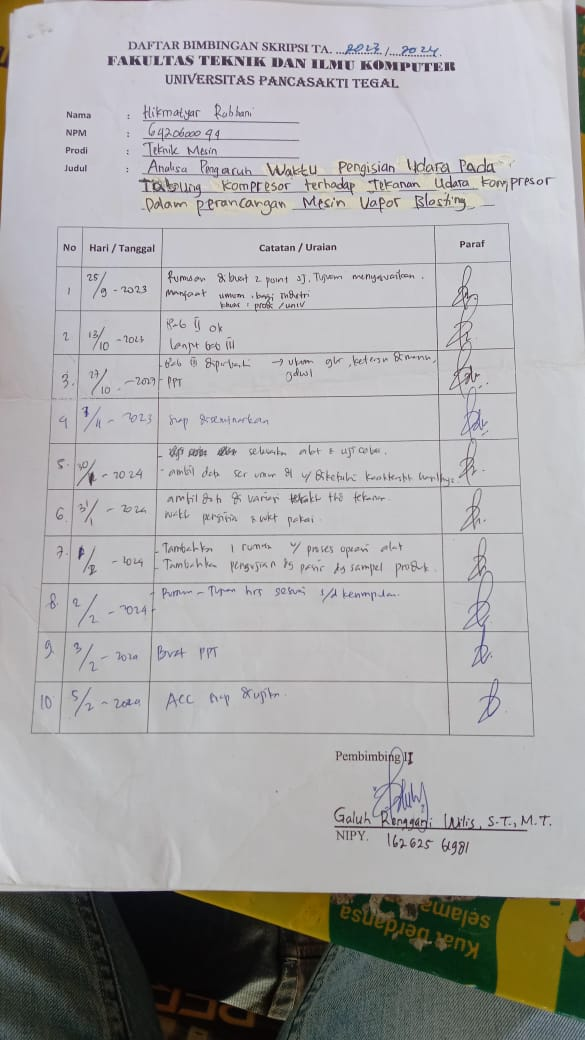 DAFTAR BIMBINGAN SKRIPSI TA. 2023 / 2024
FAKULTAS TEKNIK DAN ILMU KOMPUTER
UNIVERSITAS PANCASAKTI TEGAL
Nama : Hikmatyar Rabbani
NPM : 6420600044
Prodi : Teknik Mesin
Judul : Analisa Pengaruh Waktu Pengisian Udara Pada
Tabung Kompresor terhadap Tekanan Udara Kompresor
Dalam perancangan Mesin Vapor Blasting
No Hari / Tanggal Catatan / Uraian Paraf
1 25/9 - 2023 Rumusan dibuat 2 point sj, Tujuan menyesuaikan.
manfaat umum : bagi Industri
khusus : prodi / univ
2 13/10 - 2023 Bab II ok
lanjut bab III
3. 27/10 - 2023 - Bab III diperbaiki → ukuran gbr,
jdwl
- PPT
4 /11 - 2023 siap diseminarkan
5. 30/ - 2024 - selesaikan alat & uji coba.
- ambil data
6. 31/1 - 2024 ambil dt & variasi thd tekanan
wkt pengisian & wkt pakai.
7. /2 - 2024 - Tambahkan 1 rumusan proses operasi alat
- Tambahkan pengujian dg pasir dg sampel produk.
8. 2/2 - 2024 - Rumusan - Tujuan hrs sesuai kesimpulan.
9. 3/2 - 2024 Buat PPT
10 5/2 - 2024 ACC siap diujikan.
Pembimbing II
Galuh Renggani Wilis, S.T., M.T.
NIPY. 162625 61981
Kuat berdansa
selama